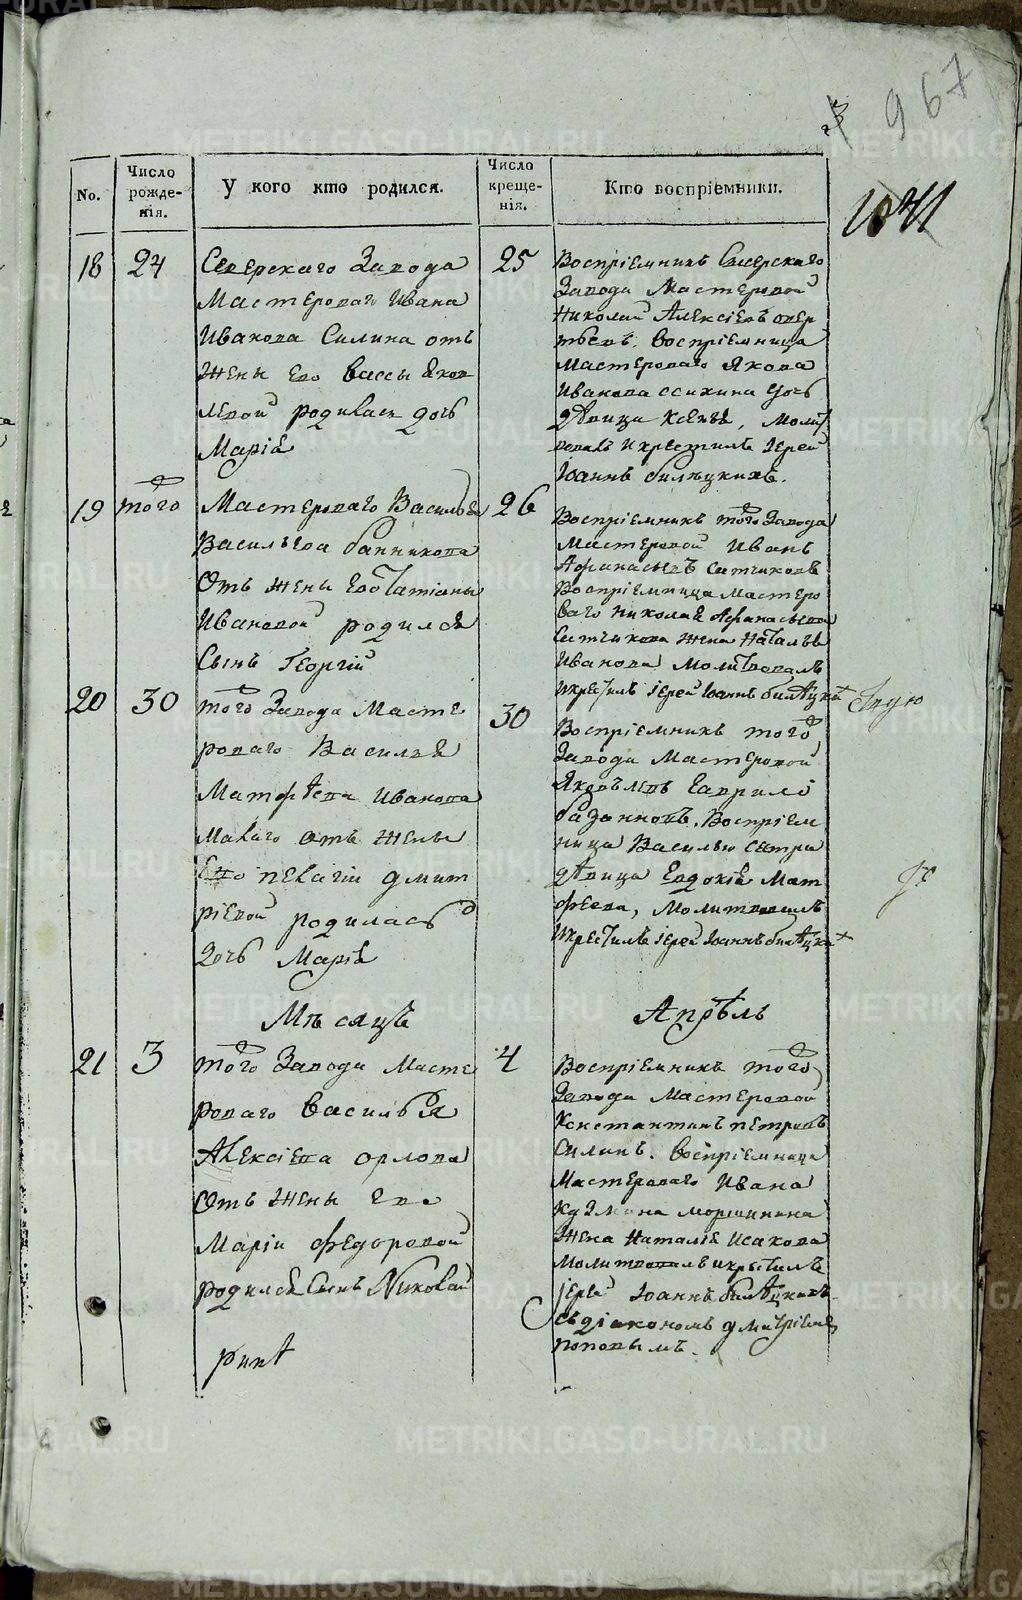 967
No.
Число рожде-нія.
У кого кто родился.
Число креще-нія.
Кто воспріемники.
18
24
Северскаго Завода
Мастероваго Ивана
Иванова Силина отъ
Жены Его Вассы Яков
левой родилась дочь
Марія
25
Воспріемникъ Северскаго
Завода Мастеровой
Николай Алексіевъ
воспріемница
Мастероваго Якова
Иванова дочь
дѣвица Ксенья, Молит
вовалъ и крестилъ Іерей
Іоаннъ билѣцкихъ.
19
того
Мастероваго Василья
Васильева банникова
Отъ жены Его Татіаны
Ивановой родился
Сынъ Георгій
26
Воспріемникъ того Завода
Мастеровой Иванъ
Афанасьевъ Ситчиковъ
Воспріемница Мастеро
ваго Николая Афанасьева
Ситчикова жена Наталья
Иванова Молитвовалъ
и крестилъ Іерей Іоаннъ билѣцкй
20
30
того Завода Масте
роваго Василья
Матфѣева Иванова
Малаго отъ жены
Его пелагіи дмит
ріевой родилась
дочь Марія
30
Воспріемникъ того
Завода Мастеровой
Яковъ Гаврило
Воспріем
ница Василью сестра
дѣвица Евдокія Мат
фѣева, Молитвовалъ
и крестилъ Іерей Іоаннъ билѣцки
Мѣсяцъ
Апрѣль
21
3
того Завода Масте
роваго Василья
Алексіева орлова
Отъ жены Его
Маріи федоровой
родился Сынъ Николай
4
Воспріемникъ того
Завода Мастеровой
Константинъ петровъ
Силинъ. воспріемница
Мастероваго Ивана
Кузмина моршинина
Жена Наталія Исакова
Молитвовалъ и крестилъ
Іерей Іоаннъ билѣцкихъ
съ діакономъ дмитріемъ
поповымъ.
METRIKI.GASO-URAL.RU